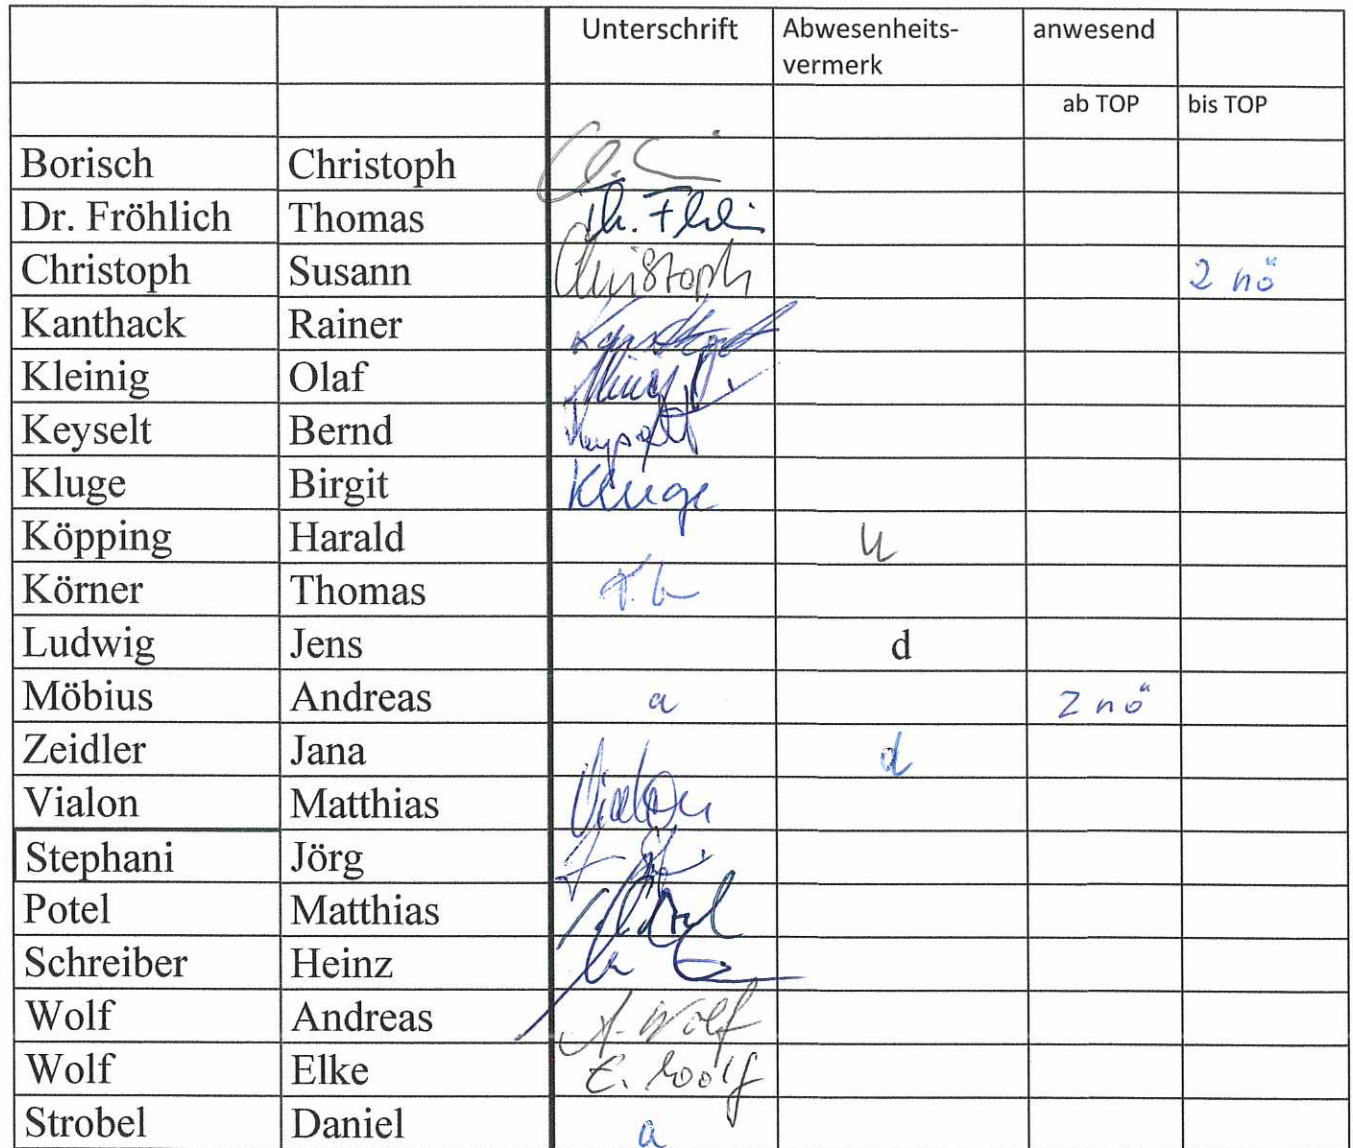 Unterschrift Abwesenheits- anwesend
vermerk
ab TOP bis TOP
Borisch Christoph
Dr. Fröhlich Thomas
Christoph Susann Christoph 2 nö
Kanthack Rainer
Kleinig Olaf
Keyselt Bernd Keyselt
Kluge Birgit Kluge
Köpping Harald u
Körner Thomas
Ludwig Jens d
Möbius Andreas a 2 nö
Zeidler Jana d
Vialon Matthias Vialon
Stephani Jörg
Potel Matthias
Schreiber Heinz
Wolf Andreas A. Wolf
Wolf Elke E. Wolf
Strobel Daniel a